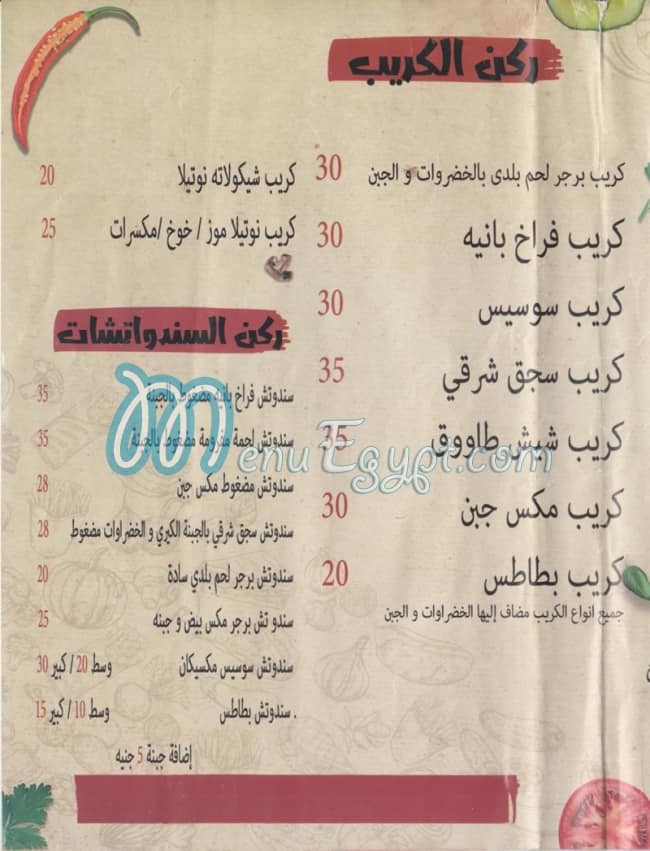 ركن الكريب
كريب برجر لحم بلدى بالخضروات و الجبن 30
كريب فراخ بانيه 30
كريب سوسيس 30
كريب سجق شرقي 35
كريب شيش طاووق 35
كريب مكس جبن 30
كريب بطاطس 20
جميع انواع الكريب مضاف إليها الخضراوات و الجبن
كريب شيكولاته نوتيلا 20
كريب نوتيلا موز / خوخ /مكسرات 25
ركن السندواتشات
سندوتش فراخ بانيه مضغوط بالجبنة 35
سندوتش لحمة مفرومة مضغوط بالجبنة 35
سندوتش مضغوط مكس جبن 28
سندوتش سجق شرقي بالجبنة الكيري و الخضراوات مضغوط 28
سندوتش برجر لحم بلدي سادة 20
سندو تش برجر مكس بيض و جبنه 25
سندوتش سوسيس مكسيكان وسط 20 / كبير 30
. سندوتش بطاطس وسط 10 / كبير 15
إضافة جبنة 5 جنيه
MenuEgypt.com